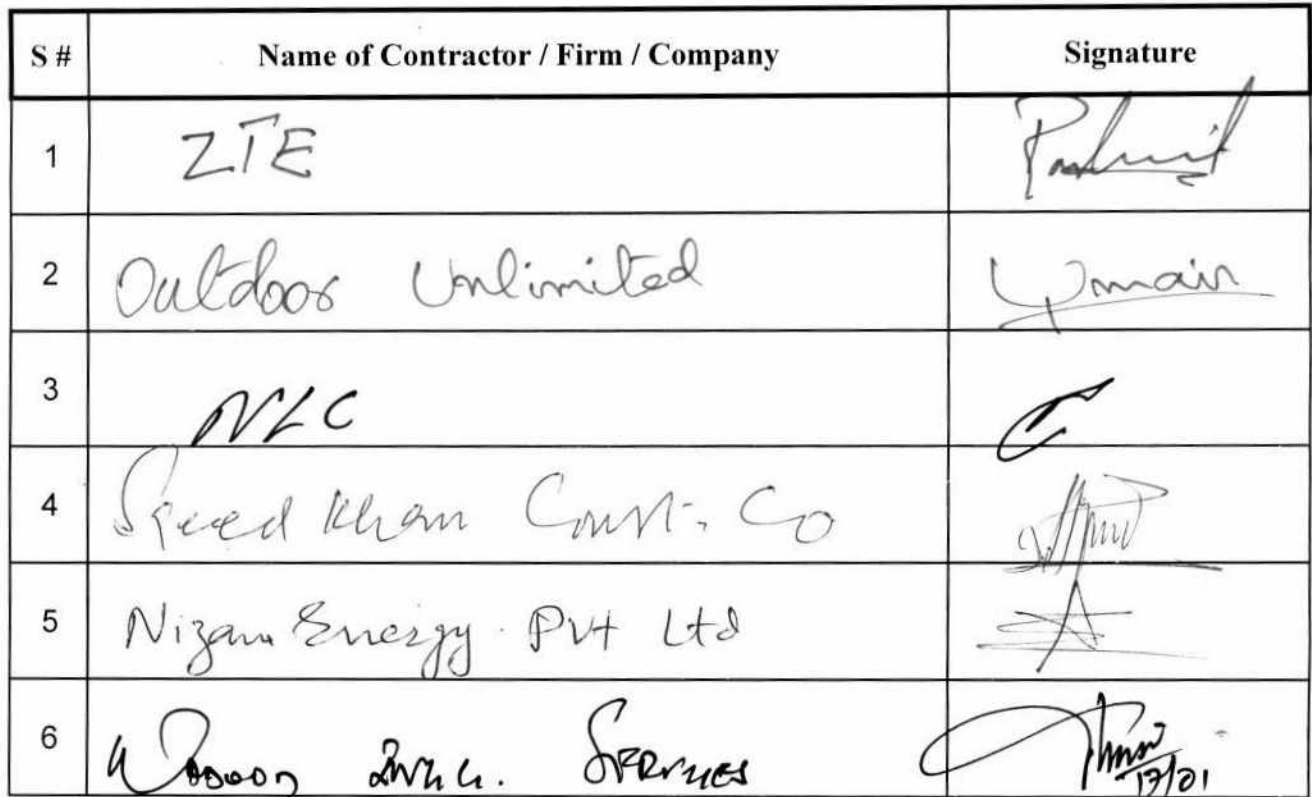 S # Name of Contractor / Firm / Company Signature
1 ZTE
2 Outdoor Unlimited Umair
3 NLC
4 Saeed Khan Const. Co
5 Nizam Energy Pvt Ltd
6 Services 17/01